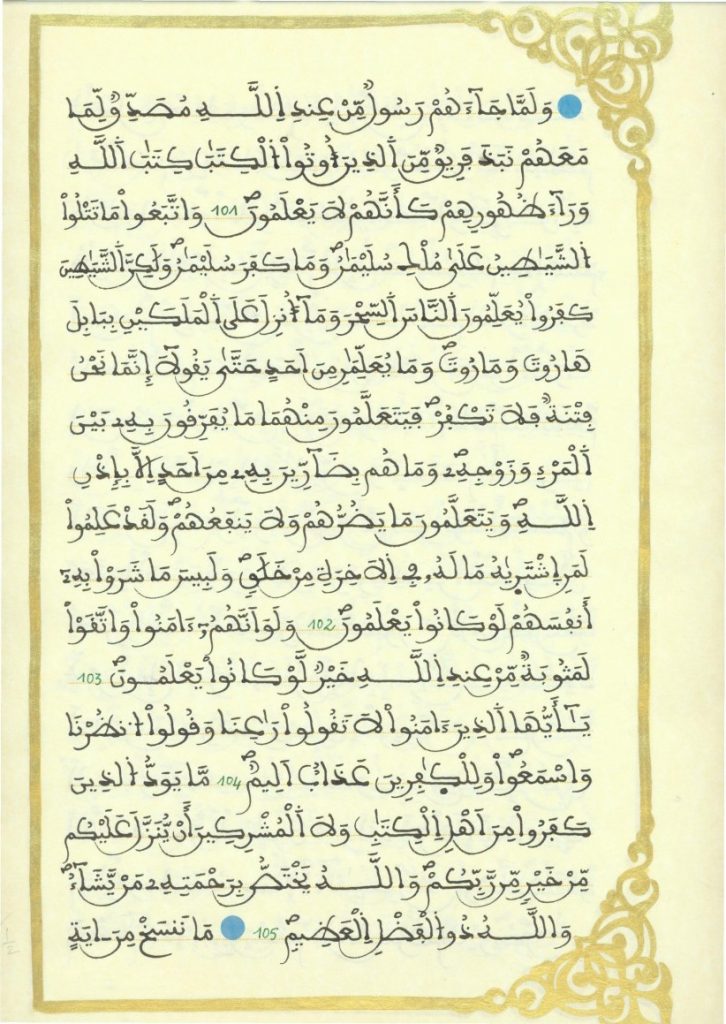 وَلَمَّا جَآءَهُمْ رَسُولٌ مِّنْ عِندِ اِ۬للَّهِ مُصَدِّقٌ لِّمَا
مَعَهُمْ نَبَذَ فَرِيقٌ مِّنَ اَ۬لذِينَ أُوتُوا۟ اُ۬لْكِتَٰبَ كِتَٰبَ اَ۬للَّهِ
وَرَآءَ ظُهُورِهِمْ كَأَنَّهُمْ لَا يَعْلَمُونَ 101 وَاتَّبَعُوا۟ مَا تَتْلُوا۟
اُ۬لشَّيَٰطِينُ عَلَىٰ مُلْكِ سُلَيْمَٰنَ وَمَا كَفَرَ سُلَيْمَٰنُ وَلَٰكِنَّ اَ۬لشَّيَٰطِينَ
كَفَرُوا۟ يُعَلِّمُونَ اَ۬لنَّاسَ اَ۬لسِّحْرَ وَمَآ أُنزِلَ عَلَى اَ۬لْمَلَكَيْنِ بِبَابِلَ
هَارُوتَ وَمَارُوتَ وَمَا يُعَلِّمَٰنِ مِنَ اَحَدٍ حَتَّىٰ يَقُولَا إِنَّمَا نَحْنُ
فِتْنَةٌ فَلَا تَكْفُرْ فَيَتَعَلَّمُونَ مِنْهُمَا مَا يُفَرِّقُونَ بِهِۦ بَيْنَ
اَ۬لْمَرْءِ وَزَوْجِهِۦ وَمَا هُم بِضَآرِّينَ بِهِۦ مِنَ اَحَدٍ اِلَّا بِإِذْنِ
اِ۬للَّهِ وَيَتَعَلَّمُونَ مَا يَضُرُّهُمْ وَلَا يَنفَعُهُمْ وَلَقَدْ عَلِمُوا۟
لَمَنِ اِ۪شْتَر۪يٰهُ مَا لَهُۥ فِے اِ۬لَاخِرَةِ مِنْ خَلَٰقٍ وَلَبِيسَ مَا شَرَوْا۟ بِهِۦٓ
أَنفُسَهُمْ لَوْ كَانُوا۟ يَعْلَمُونَ 102 وَلَوَ اَنَّهُمُۥٓ ءَامَنُوا۟ وَاتَّقَوْا۟
لَمَثُوبَةٌ مِّنْ عِندِ اِ۬للَّهِ خَيْرٌ لَّوْ كَانُوا۟ يَعْلَمُونَ 103
يَٰٓأَيُّهَا اَ۬لذِينَ ءَامَنُوا۟ لَا تَقُولُوا۟ رَٰعِنَا وَقُولُوا۟ اُ۟نظُرْنَا
وَاسْمَعُوا۟ وَلِلْكٰ۪فِرِينَ عَذَابٌ اَلِيمٌ 104 مَّا يَوَدُّ اُ۬لذِينَ
كَفَرُوا۟ مِنَ اَهْلِ اِ۬لْكِتَٰبِ وَلَا اَ۬لْمُشْرِكِينَ أَنْ يُّنَزَّلَ عَلَيْكُم
مِّنْ خَيْرٍ مِّن رَّبِّكُمْ وَاللَّهُ يَخْتَصُّ بِرَحْمَتِهِۦ مَنْ يَّشَآءُ
وَاللَّهُ ذُو اُ۬لْفَضْلِ اِ۬لْعَظِيمِ 105 مَا نَنسَخْ مِنَ اٰيَةٍ